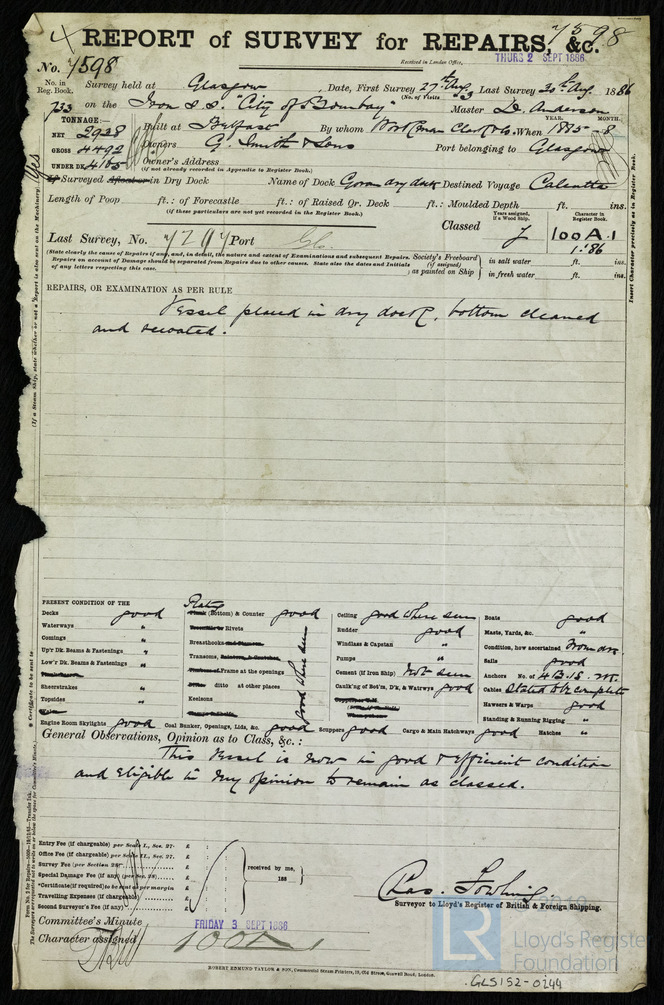 7598
REPORT of SURVEY for REPAIRS, &c.
Received in London Office,
THURS 2 SEPT 1886
No. 7598
No. in Reg. Book.
Survey held at Glasgow Date, First Survey 27th Aug. Last Survey 30th Aug. 1886
(No. of Visits)
733 on the Iron s.s. "City of Bombay" Master D. Anderson
TONNAGE:
NET 2938
GROSS 4492
UNDER DK 4165
YEAR. MONTH.
Built at Belfast By whom Workman Clark & Co. When 1885-8
Owners G. Smith & Sons Port belonging to Glasgow
Owner's Address
(if not already recorded in Appendix to Register Book.)
If Surveyed Afloat or in Dry Dock Name of Dock Govan dry dock Destined Voyage Calcutta
Length of Poop ft.: of Forecastle ft.: of Raised Qr. Deck ft.: Moulded Depth ft. ins.
(if these particulars are not yet recorded in the Register Book.)
Classed
Years assigned, if a Wood Ship.
Character in Register Book.
100A.1
1.86
Last Survey, No. Port Glo.
(State clearly the cause of Repairs if any, and, in detail, the nature and extent of Examinations and subsequent Repairs.
Repairs on account of Damage should be separated from Repairs due to other causes. State also the dates and Initials
of any letters respecting this case.
Society's Freeboard (if assigned) as painted on Ship
in salt water ft. ins.
in fresh water ft. ins.
REPAIRS, OR EXAMINATION AS PER RULE
Vessel placed in dry dock, bottom cleaned
and recoated.
PRESENT CONDITION OF THE
Decks good
Waterways "
Comings "
Up'r Dk. Beams & Fastenings "
Low'r Dk. Beams & Fastenings "
Sheerstrakes "
Topsides "
Plating (Bottom) & Counter good
Rivets
Breasthooks
Transoms,
Frame at the openings
ditto at other places
Keelsons
good where seen
Ceiling good where seen
Rudder good
Windlass & Capstan "
Pumps "
Cement (if Iron Ship) not seen
Caulk'ng of Bot'm, D'k, & Watrwys good
Boats good
Masts, Yards, &c. "
Condition, how ascertained From dk.
Sails good
Anchors No. of 4B.1S.
Cables Stated to be complete
Hawsers & Warps good
Standing & Running Rigging "
Engine Room Skylights good Coal Bunker, Openings, Lids, &c. good Scuppers good Cargo & Main Hatchways good Hatches "
General Observations, Opinion as to Class, &c.:
This Vessel is now in good & efficient condition
and Eligible in my opinion to remain as classed.
Entry Fee (if chargeable) per Scale I., Sec. 27. £ : :
Office Fee (if chargeable) per Scale II., Sec. 27. £ : :
Survey Fee (per Section 28) £ : :
Special Damage Fee (if any) (per Sec. 28). £ : :
*Certificate (if required) to be sent as per margin £ : :
Travelling Expenses (if chargeable) £ : :
Second Surveyor's Fee (if any) £ : :
received by me,
188
Chas. Fowling
Surveyor to Lloyd's Register of British & Foreign Shipping.
Committee's Minute FRIDAY 3 SEPT 1886
Character assigned 100A1
ROBERT EDMUND TAYLOR & SON, Commercial Steam Printers, 19, Old Street, Goswell Road, London.
Yes
(If a Steam Ship, state whether or not a Report is also sent on the Machinery.)
* Certificate to be sent to
Insert Character precisely as in Register Book.
LR
Lloyd's Register
Foundation
GLS152-0244